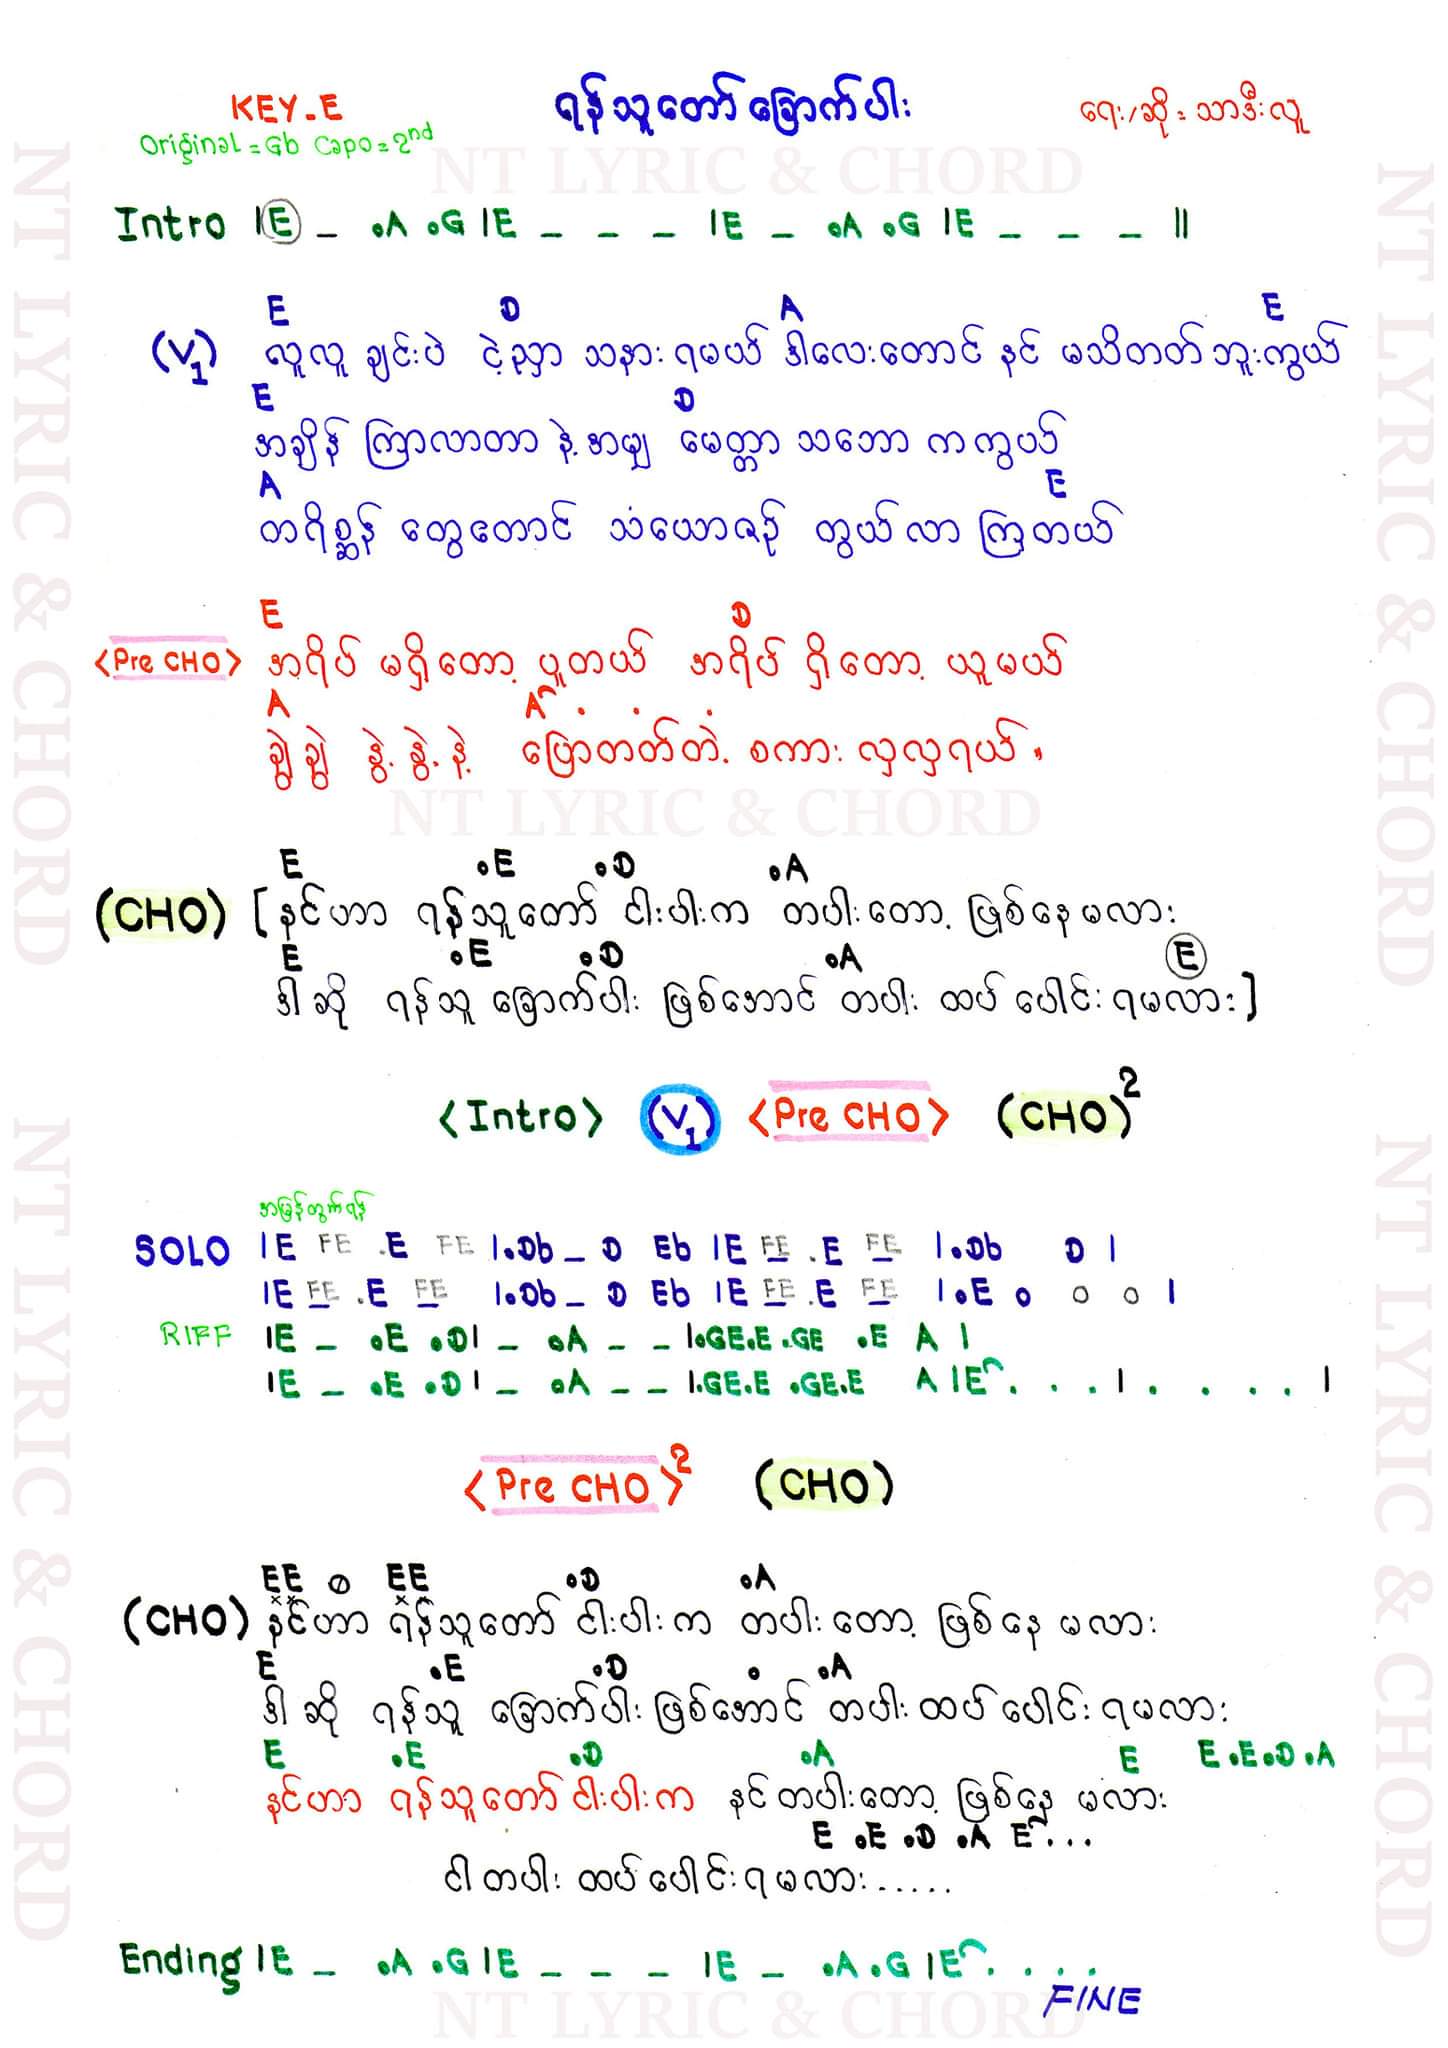 KEY.E ရန်သူတော်ခြောက်ပါး ရေး/ဆို = သာဒီးလူ
Original = Gb Capo = 2nd
NT LYRIC & CHORD
Intro |E _ .A .G |E _ _ _ |E _ .A .G |E _ _ _ ||
E D A E
(V1) လူလူချင်းပဲ ငဲ့ညှာ သနားရမယ် ဒါလေးတောင် နင် မသိတတ်ဘူးကွယ်
E D
အချိန် ကြာလာတာ နဲ့အမျှ မေတ္တာ သဘော ကကွယ်
A E
တရိစ္ဆန် တွေတောင် သံယောဇဉ် တွယ်လာ ကြတယ်
E D
<Pre CHO> အရိပ် မရှိတော့ ပူတယ် အရိပ် ရှိတော့ ယူမယ်
A A . . .
ချွဲချွဲ နွဲ့နွဲ့နဲ့ ပြောတတ်တဲ့ စကား လှလှရယ် ။
NT LYRIC & CHORD
E .E .D .A
(CHO) [နင်ဟာ ရန်သူတော် ငါးပါးက တပါးတော့ ဖြစ်နေမလား
E .E .D .A E
ဒါဆို ရန်သူ ခြောက်ပါး ဖြစ်အောင် တပါး ထပ်ပေါင်းရမလား]
<Intro> (V1) <Pre CHO> (CHO)2
အမြန်တွက်ရန်
SOLO |E FE .E FE |.Db _ D Eb |E FE .E FE |.Db D |
|E FE .E FE |.Db _ D Eb |E FE .E FE |.E o o o |
RIFF |E _ .E .D| _ .A _ _ |.GE.E .GE .E A |
|E _ .E .D| _ .A _ _ |.GE.E .GE.E A |E . . . | . . . . |
<Pre CHO>2 (CHO)
EE o EE .D .A
(CHO) နင်ဟာ ရန်သူတော် ငါးပါးက တပါးတော့ ဖြစ်နေ မလား
E .E .D . .A
ဒါဆို ရန်သူ ခြောက်ပါး ဖြစ်အောင် တပါးထပ်ပေါင်းရမလား
E .E .D .A E E.E.D.A
နင်ဟာ ရန်သူတော် ငါးပါးက နင်တပါးတော့ ဖြစ်နေ မလား
E .E .D .A E...
ငါတပါး ထပ်ပေါင်းရမလား.....
Ending |E _ .A .G |E _ _ _ |E _ .A .G |E . . . .
FINE
NT LYRIC & CHORD
NT LYRIC & CHORD
NT LYRIC & CHORD
NT LYRIC & CHORD
NT LYRIC & CHORD